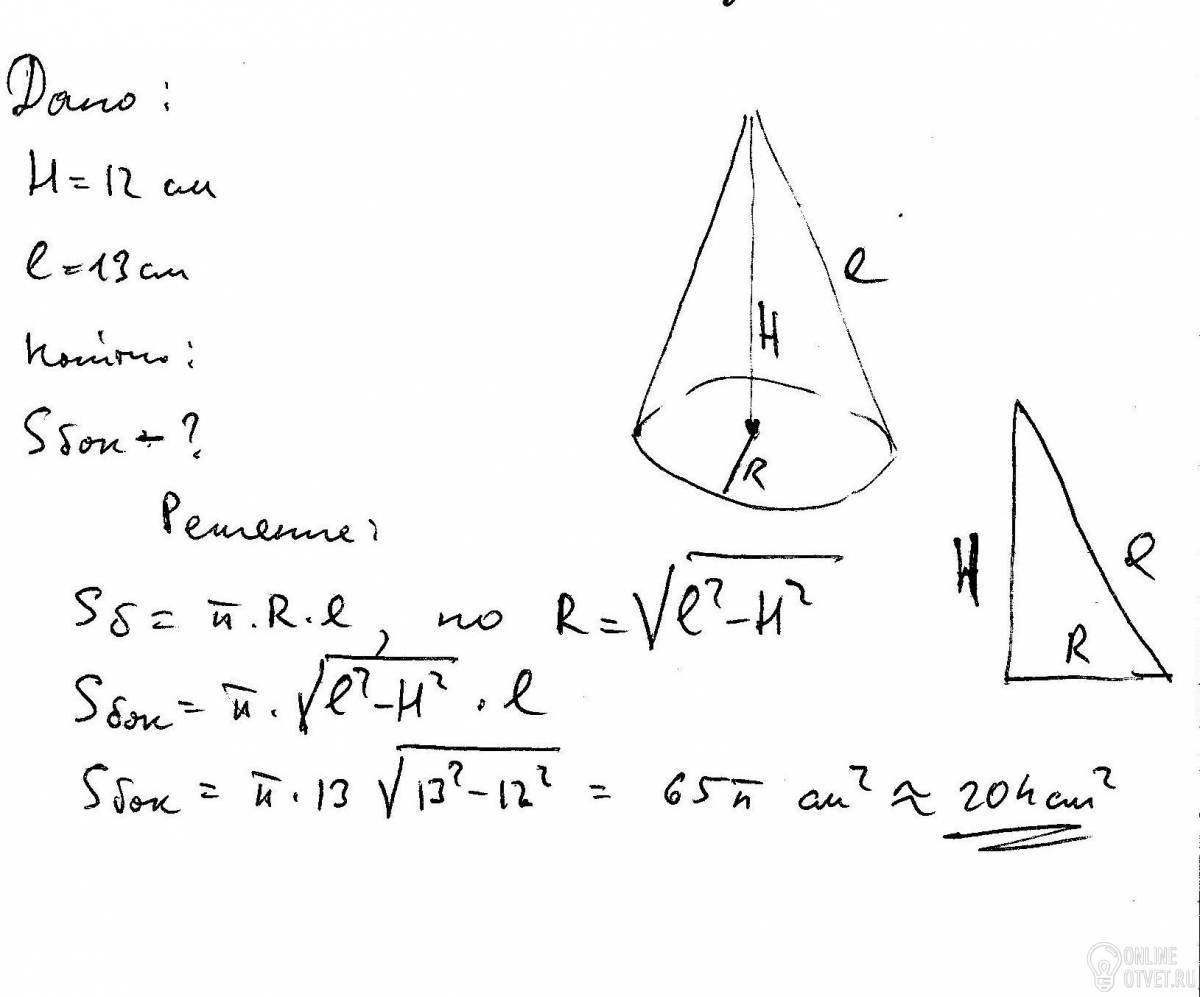 Дано:
H = 12 см
l = 13 см
Найти:
Sбок - ?
H
l
R
Решение:
Sб = π · R · l, но R = √(l² - H²)
H
l
R
Sбок = π · √(l² - H²) · l
Sбок = π · 13 √(13² - 12²) = 65π см² ≈ 204 см²
ONLINE
OTVET.RU